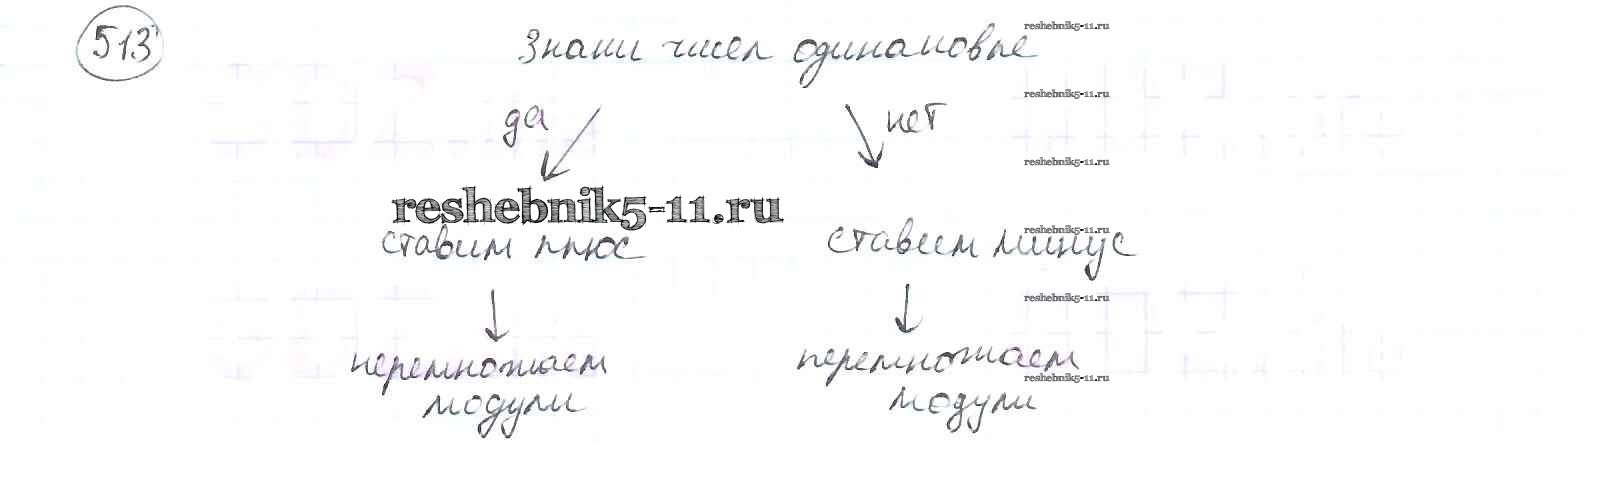 513
Знаки чисел одинаковые
reshebnik5-11.ru
reshebnik5-11.ru
да
нет
reshebnik5-11.ru
reshebnik5-11.ru
reshebnik5-11.ru
ставим плюс
ставим минус
reshebnik5-11.ru
перемножаем
перемножаем
reshebnik5-11.ru
модули
модули